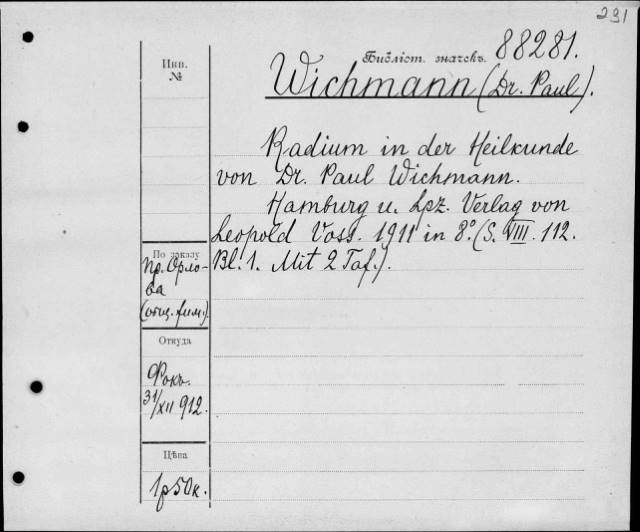 231
Библіот. значекъ. 88281.
Инв.
№
Wichmann (Dr. Paul).
Radium in der Heilkunde
von Dr. Paul Wichmann.
Hamburg u. Lpz. Verlag von
Leopold Voss. 1911 in 8.° (S. VIII. 112.
Bl. 1. Mit 2 Taf.).
По заказу
пр. Орло-
ва
(общ. хим.).
Откуда
Фокъ.
31/XII 912.
Цѣна
1р50к.